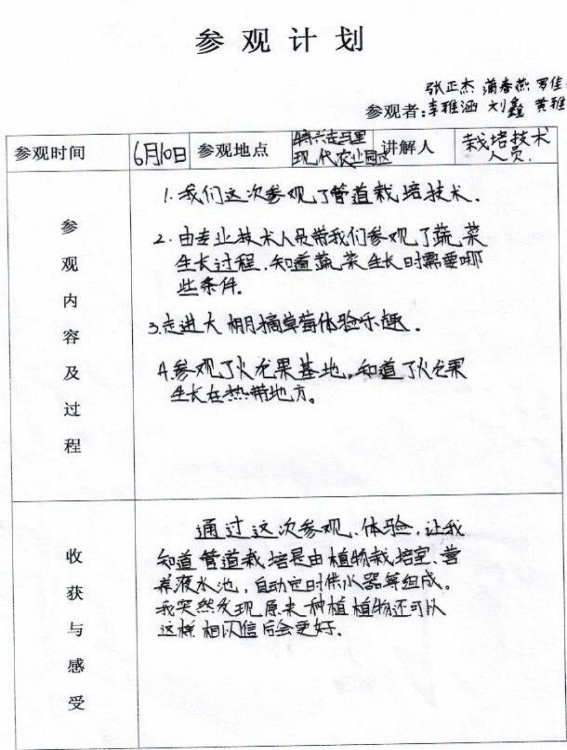 参观计划
张正杰 蒲春燕 罗佳
参观者:李雅涵 刘鑫 黄雅
参观时间 6月10日 参观地点 现代农业园区 讲解人 栽培技术人员.
参观内容及过程
1. 我们这次参观了管道栽培技术.
2. 由专业技术人员带我们参观了蔬菜
生长过程.知道蔬菜生长时需要哪
些条件.
3.走进大棚摘草莓体验乐趣.
4.参观了火龙果基地,知道了火龙果
生长在热带地方。
收获与感受
通过这次参观、体验,让我
知道管道栽培是由植物栽培室、营
养液水池,自动定时供水器等组成。
我突然发现原来种植植物还可以
这样 相信后会更好.